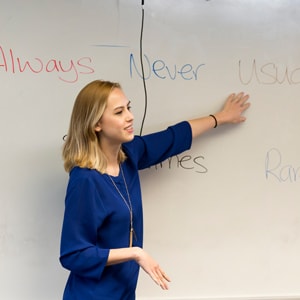 Always Never Usua
mes Ra